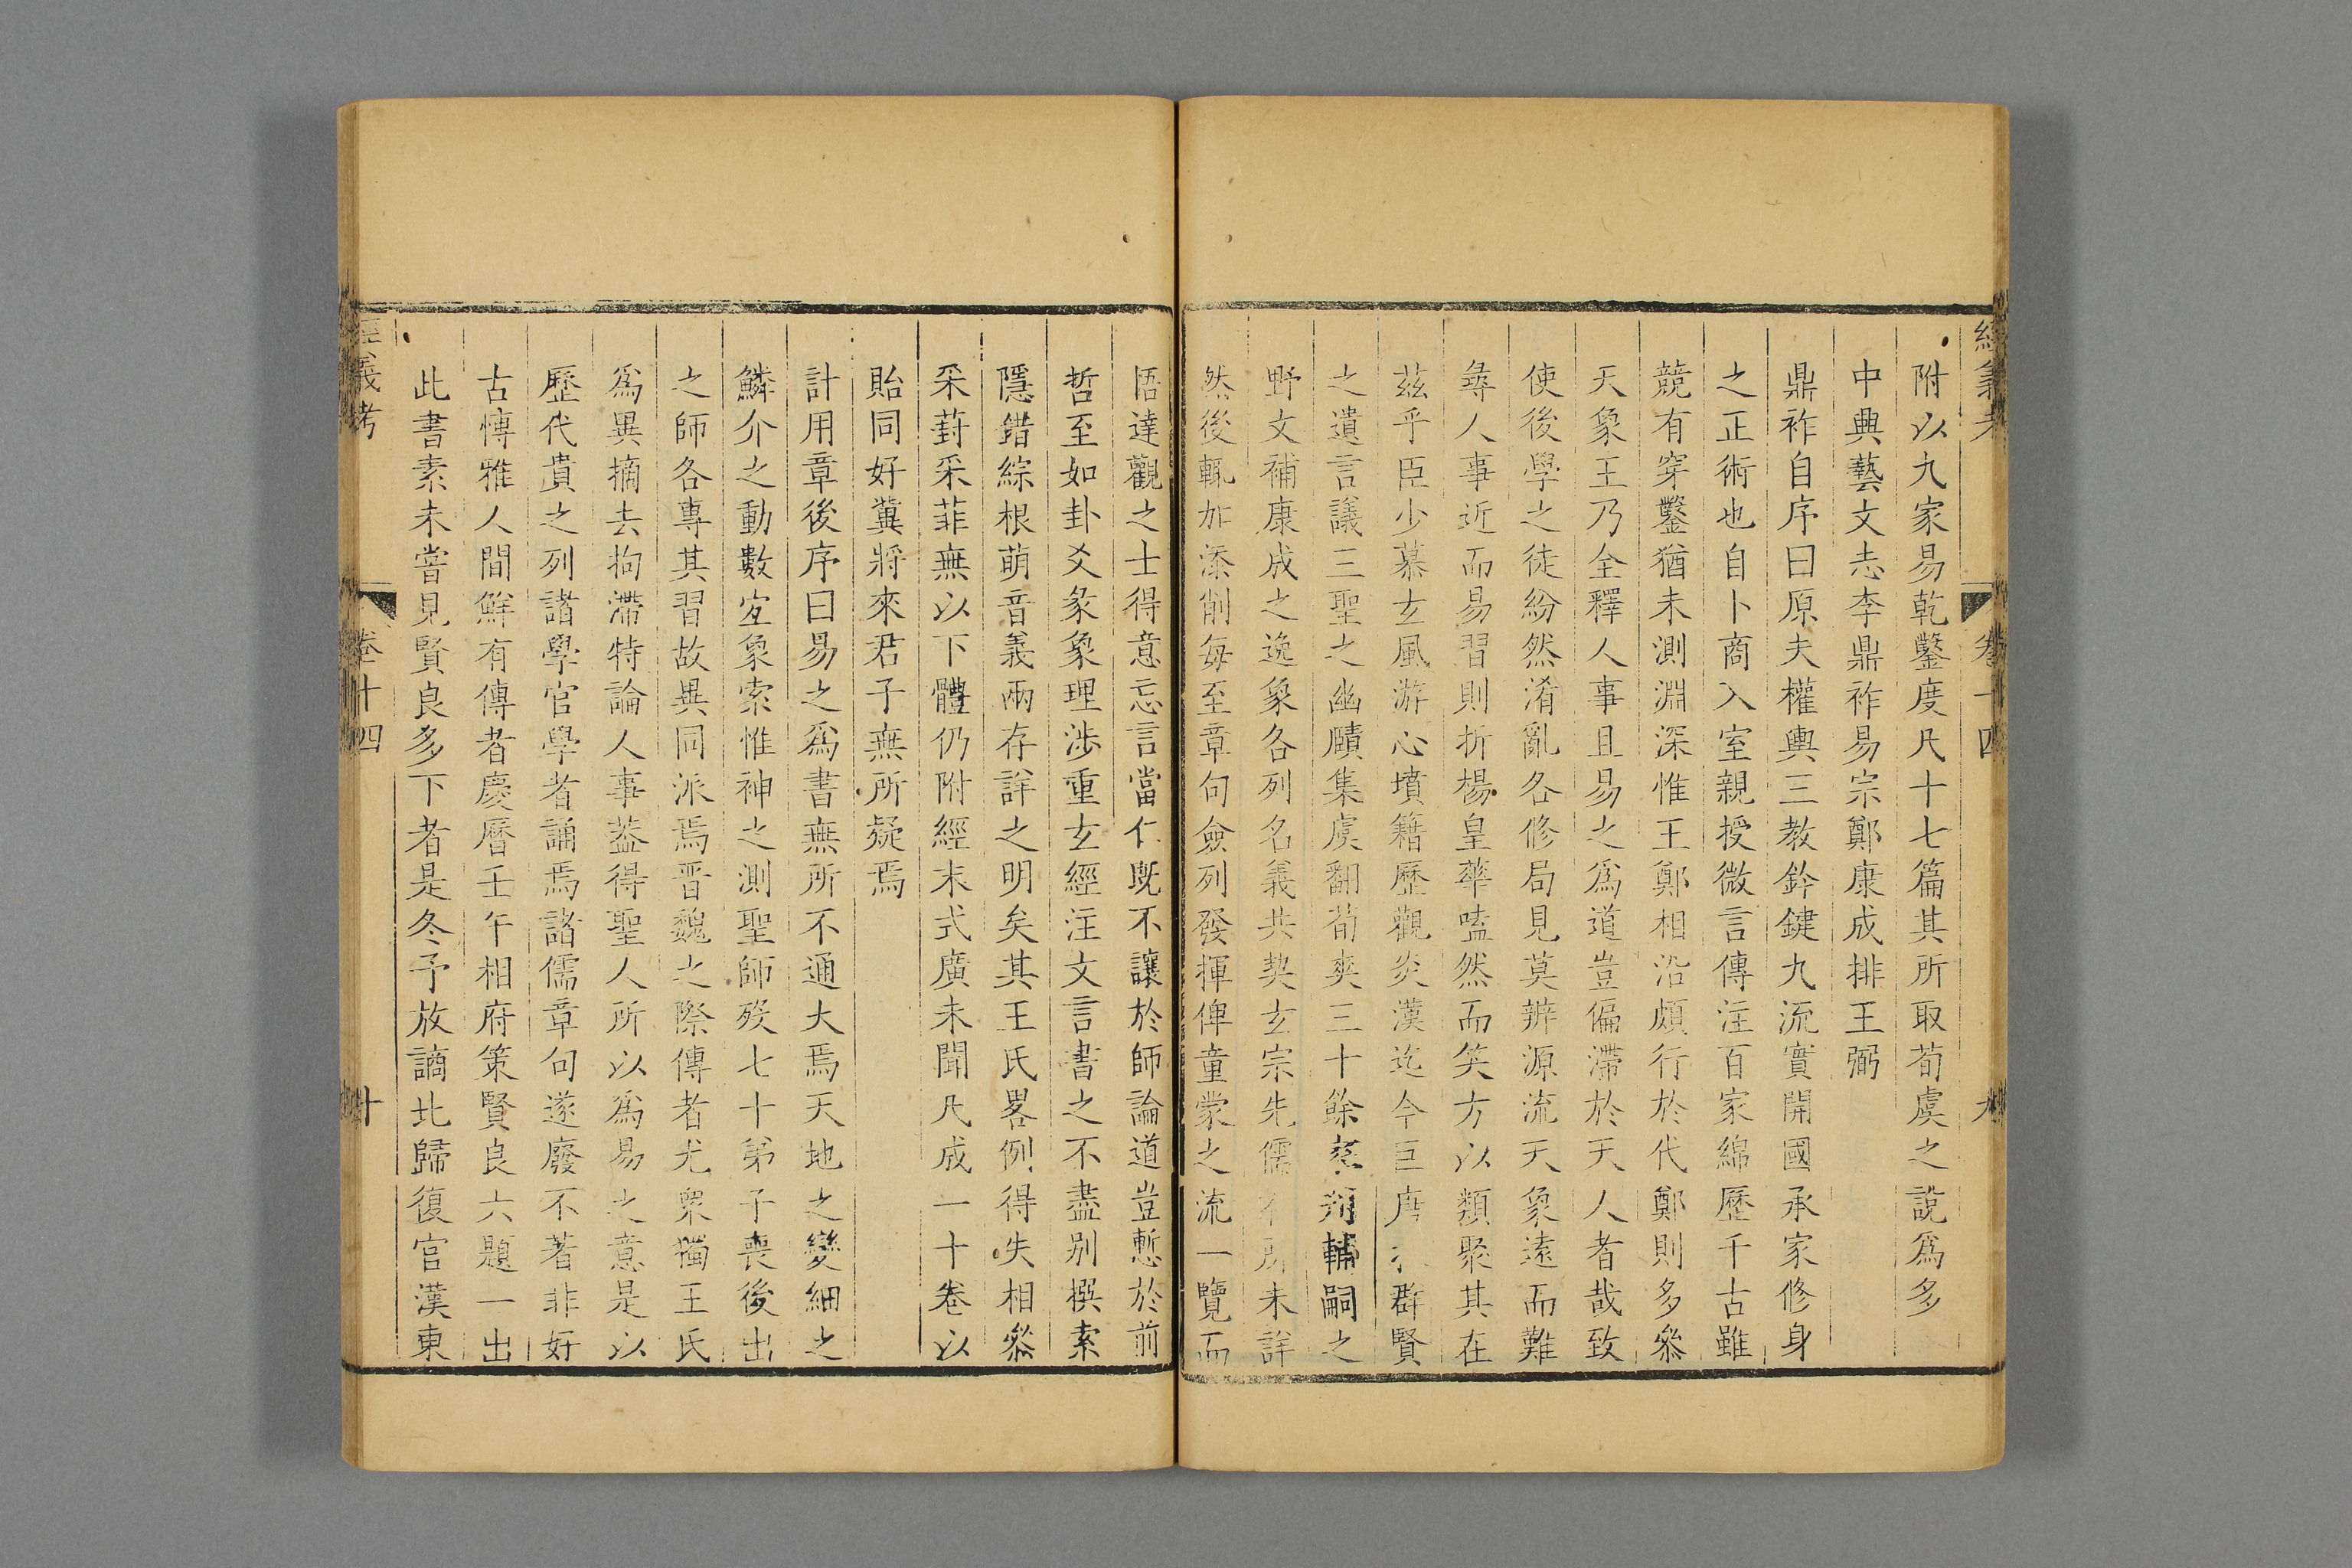 經義考
卷十四
九
附以九家易乾鑿度凡十七篇其所取荀虞之說爲多
中興藝文志李鼎祚易宗鄭康成排王弼
鼎祚自序曰原夫權輿三教鈐鍵九流實開國承家修身
之正術也自卜商入室親授微言傳注百家綿歷千古雖
競有穿鑿猶未測淵深惟王鄭相沿頗行於代鄭則多參
天象王乃全釋人事且易之爲道豈偏滯於天人者哉致
使後學之徒紛然淆亂各修局見莫辨源流天象遠而難
尋人事近而易習則折楊皇華嗑然而笑方以類聚其在
茲乎臣少慕玄風游心墳籍歷觀炎漢迄今巨唐群賢
之遺言議三聖之幽賾集虞翻荀爽三十餘家刋輔嗣之
野文補康成之逸象各列名義共契玄宗先儒所未詳
然後輒加添削每至章句僉列發揮俾童蒙之流一覽而
悟達觀之士得意忘言當仁既不讓於師論道豈慙於前
哲至如卦爻彖象理涉重玄經注文言書之不盡别撰索
隱錯綜根萌音義兩存詳之明矣其王氏畧例得失相參
采葑采菲無以下體仍附經末式廣未聞凡成一十卷以
貽同好冀將來君子無所疑焉
計用章後序曰易之爲書無所不通大焉天地之變細之
鱗介之動數宐象索惟神之測聖師歿七十弟子喪後出
之師各專其習故異同派焉晋魏之際傳者尤衆獨王氏
爲異摘去拘滯特論人事葢得聖人所以爲易之意是以
歷代貴之列諸學官學者誦焉諸儒章句遂廢不著非好
古慱雅人間鮮有傳者慶曆壬午相府策賢良六題一出
此書素未嘗見賢良多下者是冬予放謫北歸復官漢東
經義考
卷十四
十